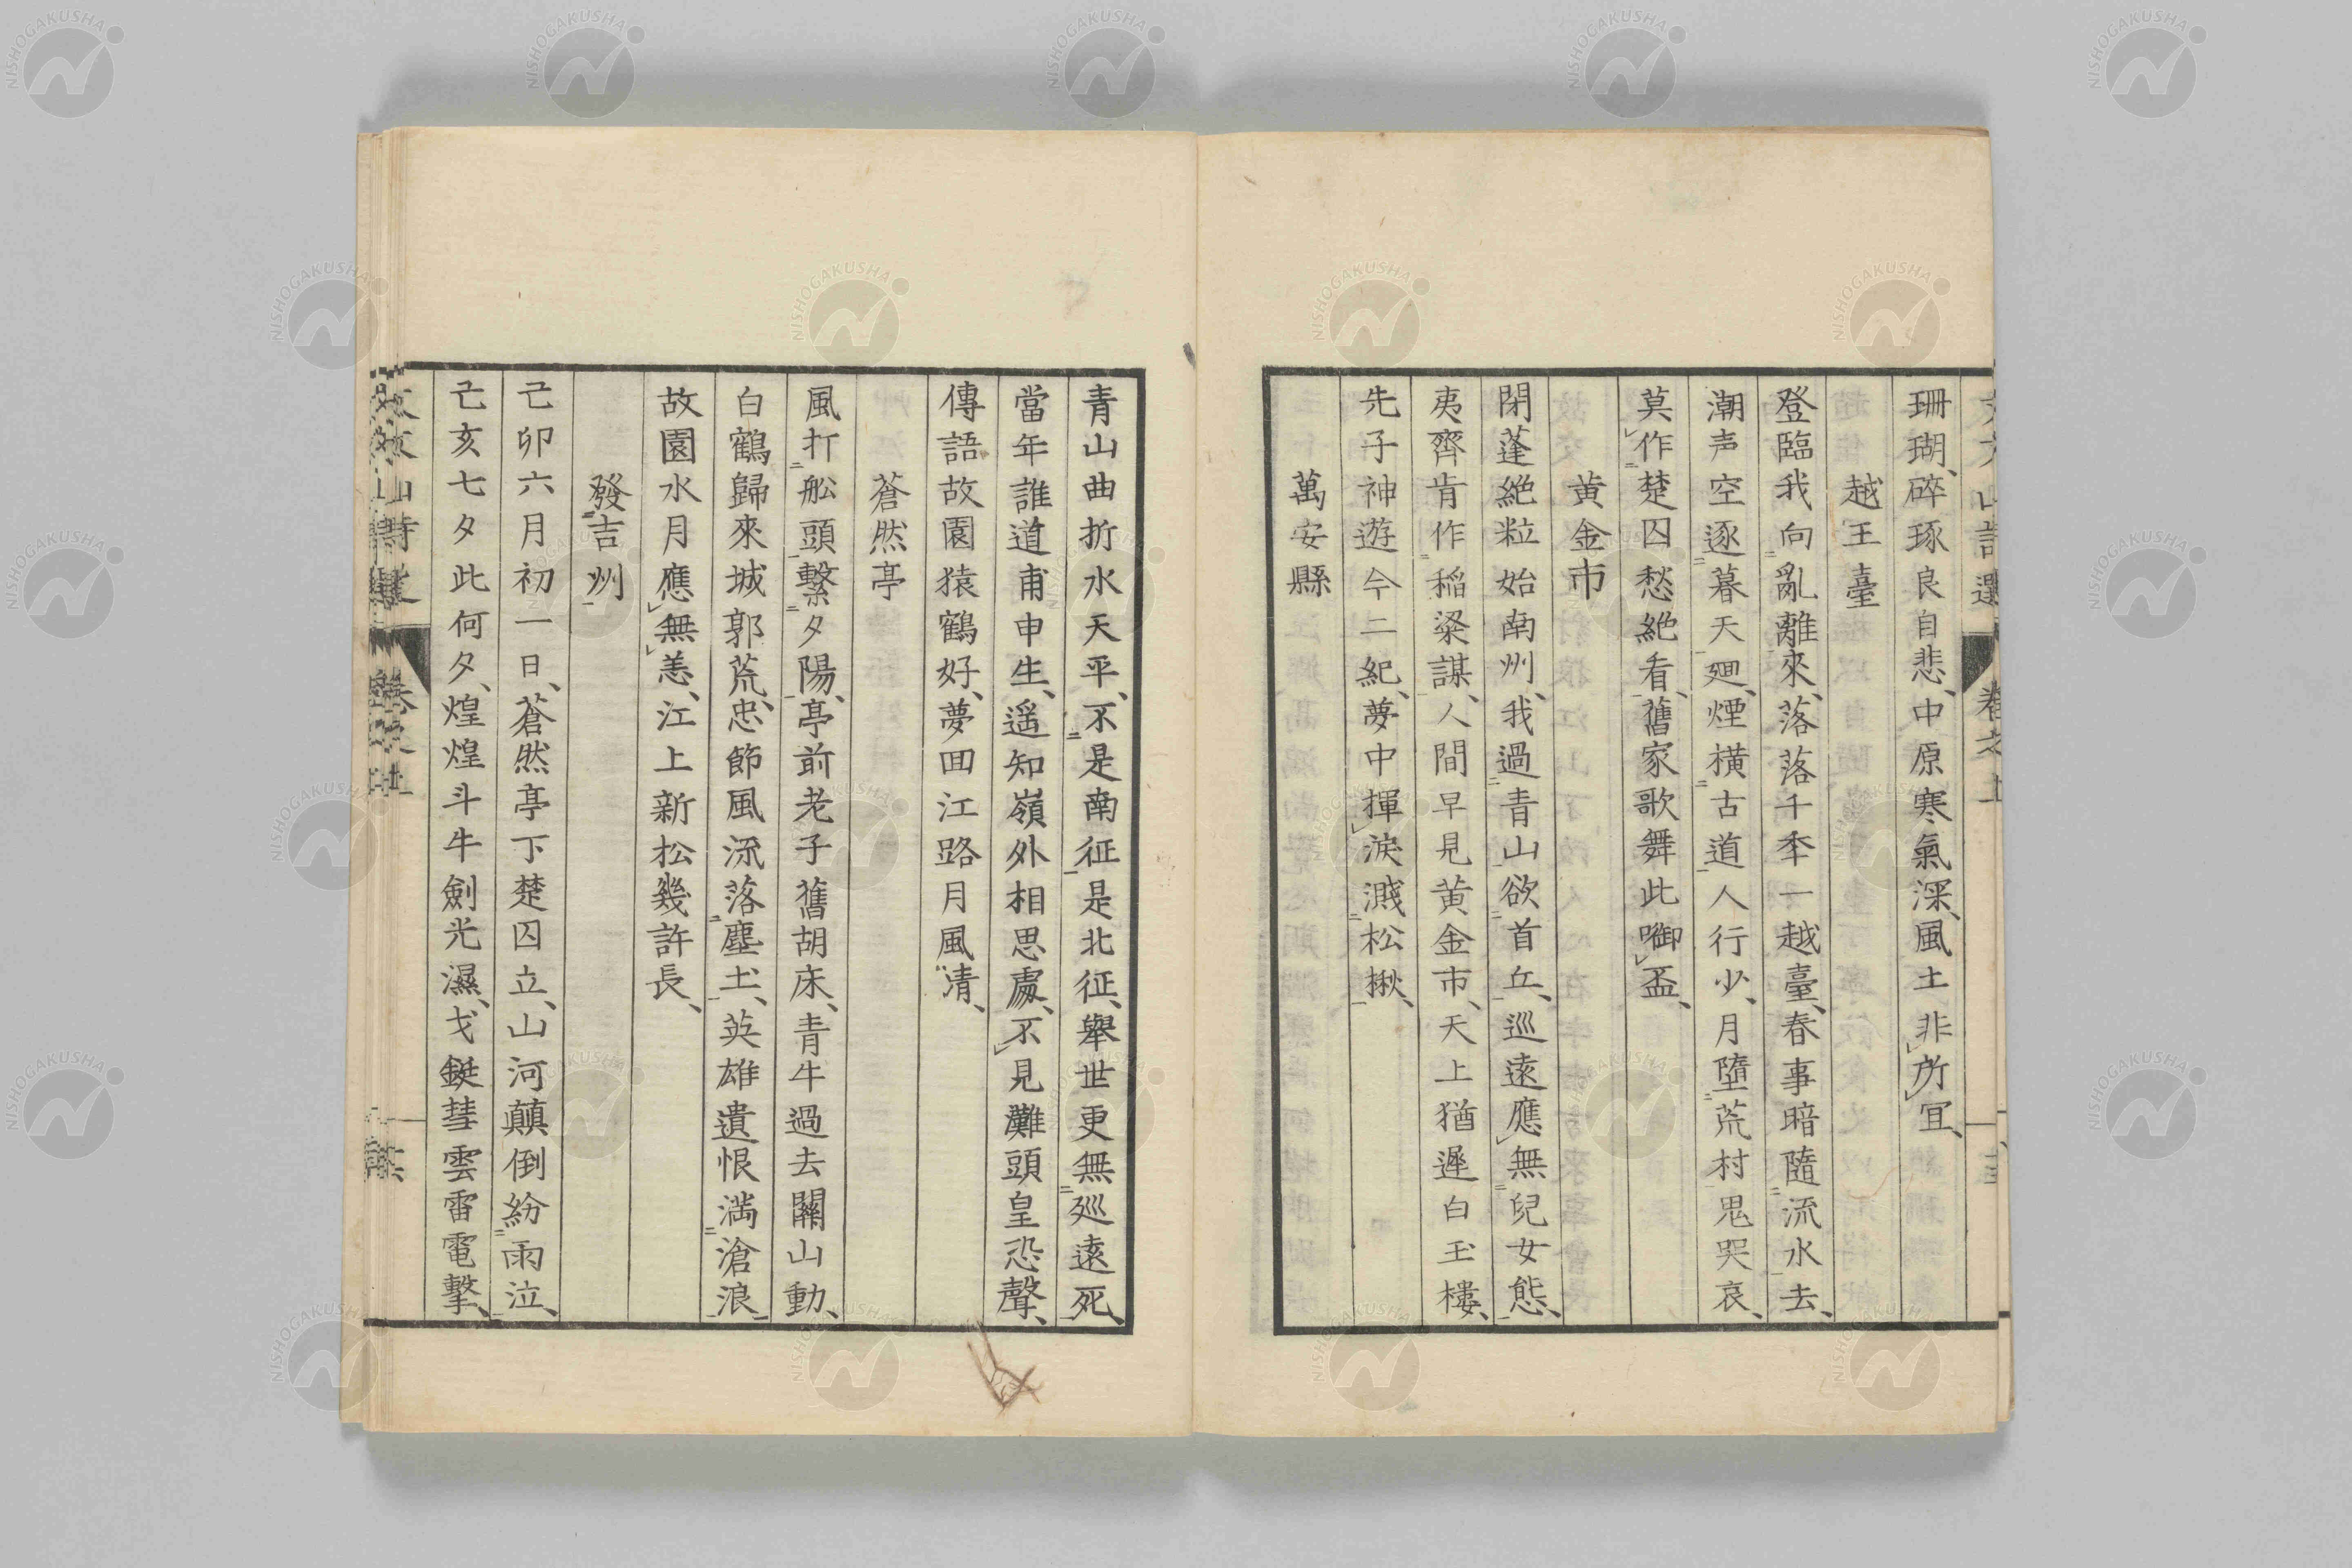 珊瑚、碎琢良自悲、中原寒氣深、風土非所冝、
越王臺
登臨我向亂離來、落落千秊一越臺、春事暗隨流水去、
潮声空逐暮天廻、煙橫古道人行少、月墮荒村鬼哭哀、
莫作楚囚愁絶看、舊家歌舞此啣盃、
黄金市
閉蓬絶粒始南州、我過青山欲首丘、巡遠應無兒女態、
夷齊肯作稲粱謀、人間早見黄金市、天上猶遲白玉樓、
先子神遊今二紀、夢中揮淚濺松楸、
萬安縣
青山曲折水天平、不是南征是北征、舉世更無廵遠死、
當年誰道甫申生、遥知嶺外相思處、不見灘頭皇恐聲、
傳語故園猿鶴好、夢囬江路月風清、
蒼然亭
風打舩頭繫夕陽、亭前老子舊胡床、青牛過去關山動、
白鶴歸來城郭荒、忠節風流落塵土、英雄遺恨滿滄浪、
故園水月應無恙、江上新松幾許長、
發吉州
己卯六月初一日、蒼然亭下楚囚立、山河顛倒紛雨泣、
己亥七夕此何夕、煌煌斗牛劍光濕、戈鋋彗雲雷電擊、